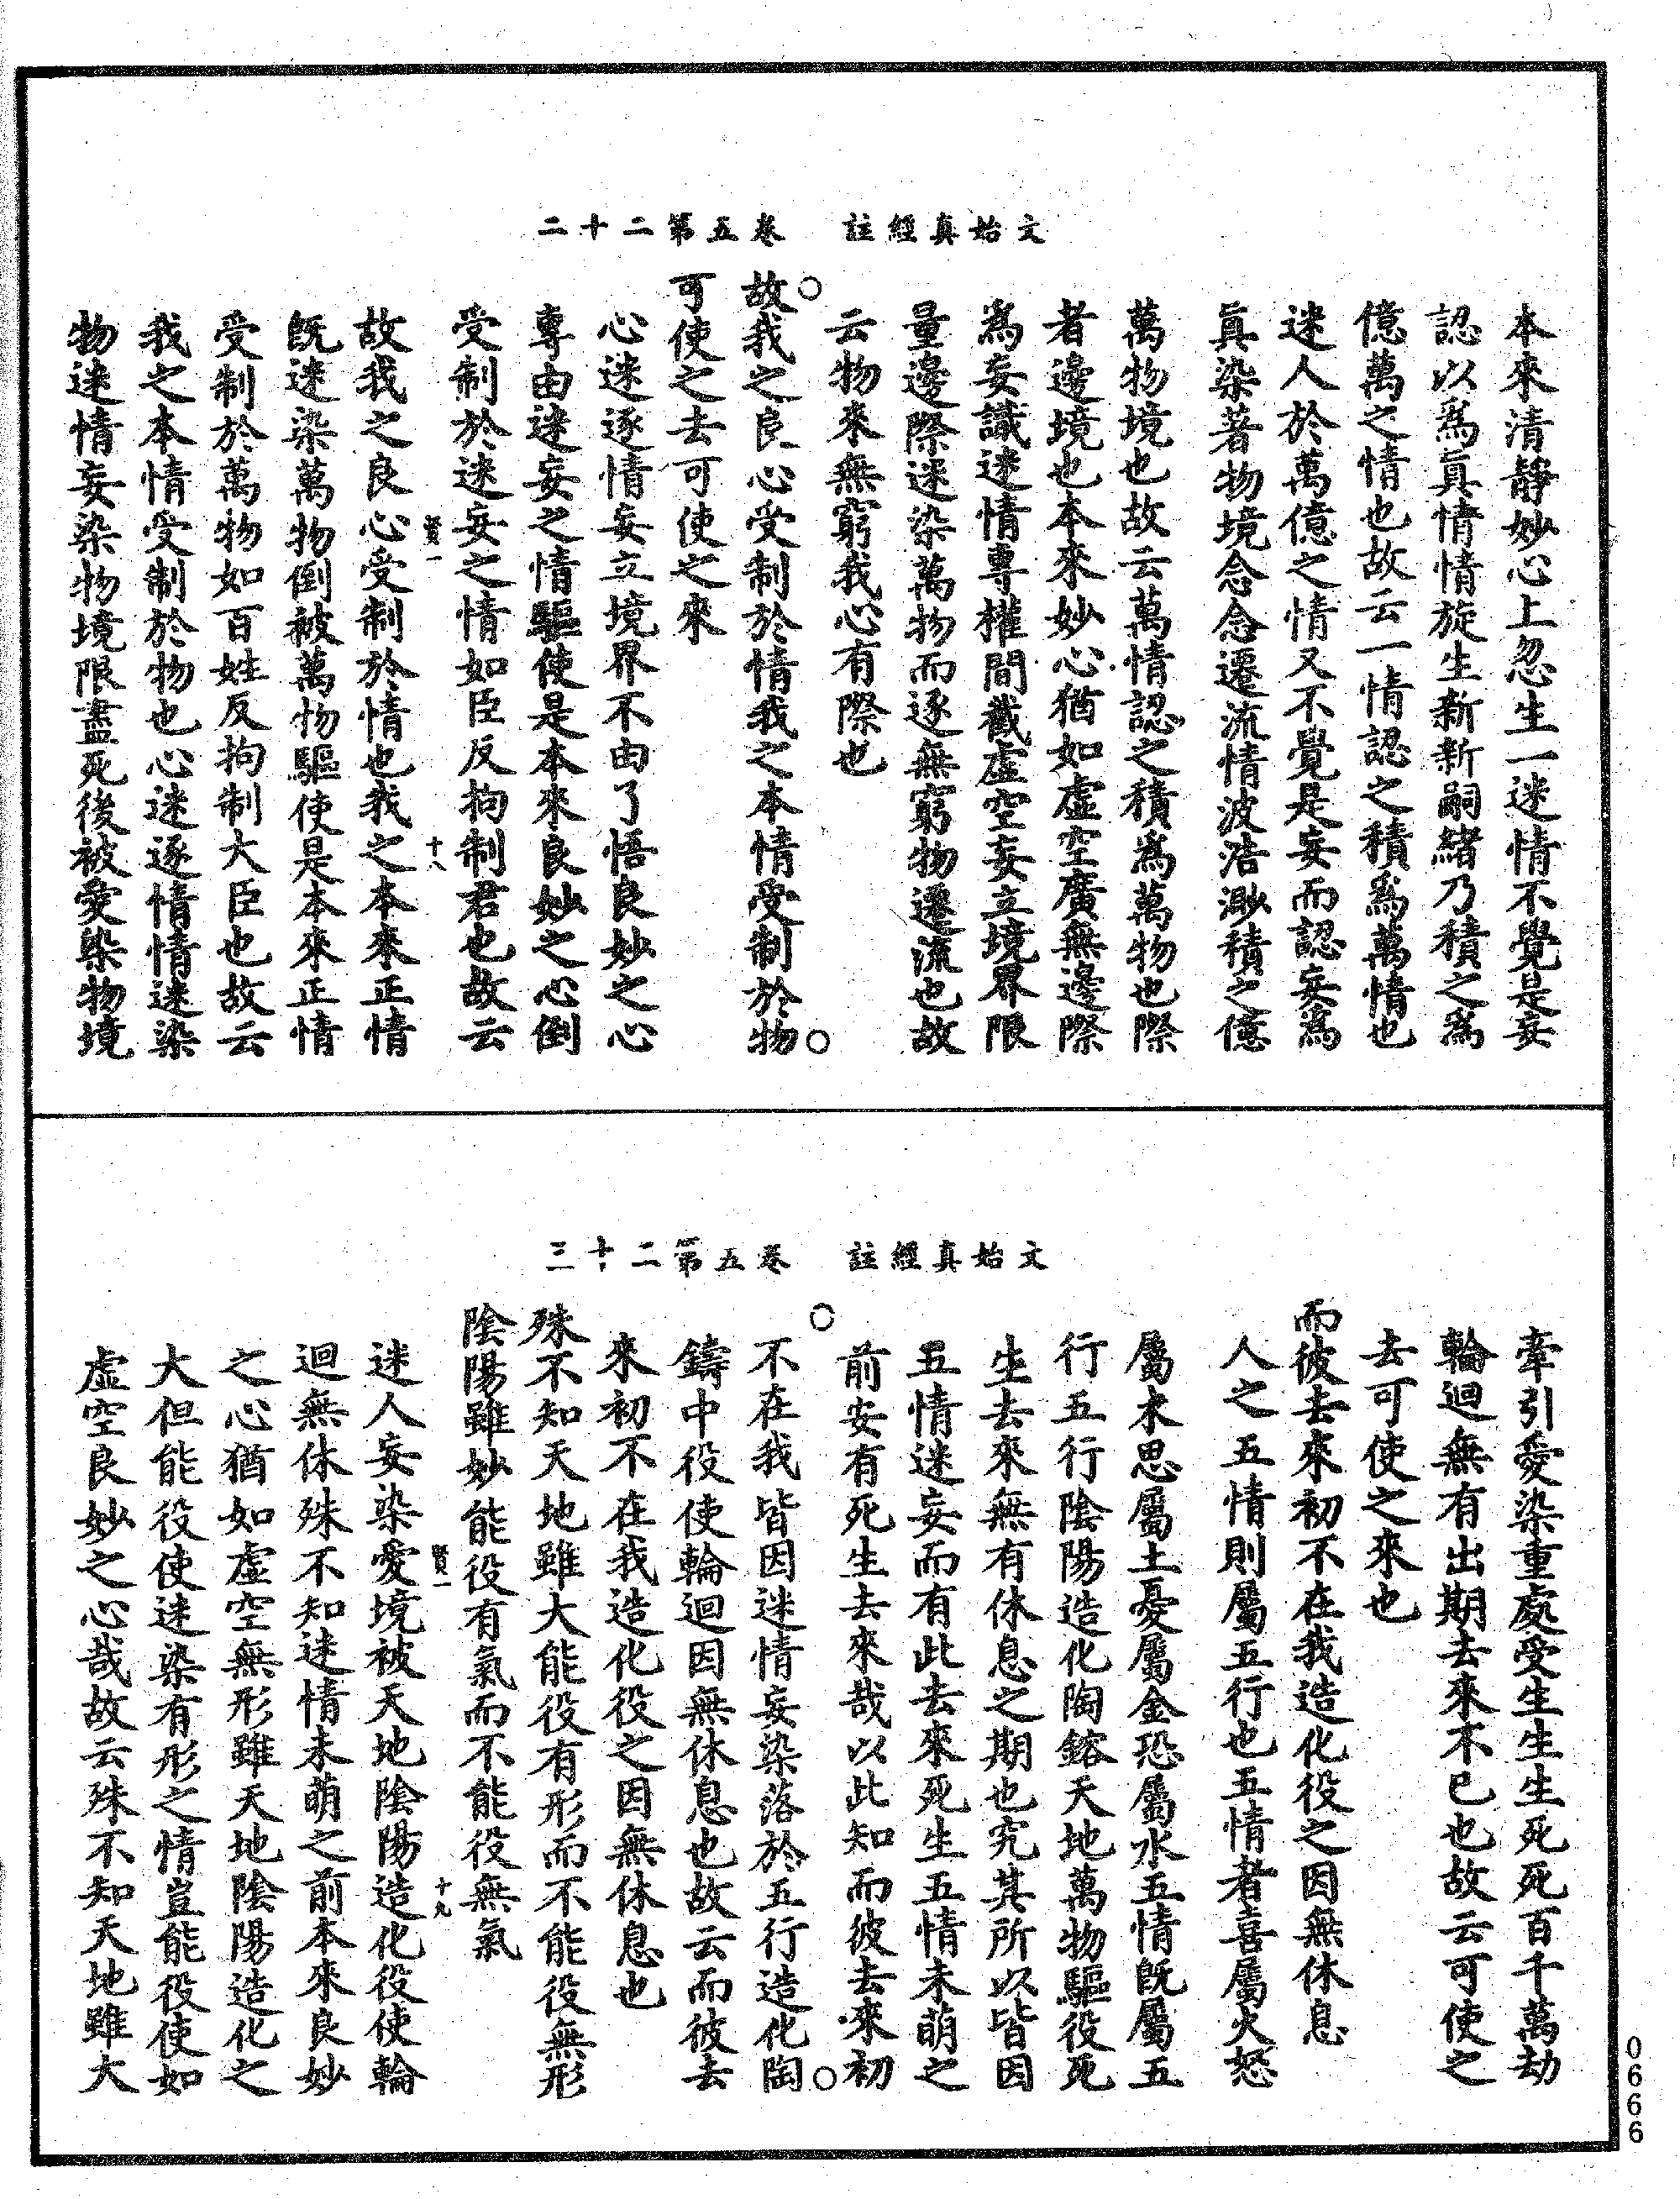 文始真經註　卷五第二十二
本來清靜妙心上忽生一迷情不覺是妄
認以爲眞情情旋生新新嗣緒乃積之爲
億萬之情也故云一情認之積爲萬情也
迷人於萬億之情又不覺是妄而認妄爲
眞染著物境念念遷流情波浩渺積之億
萬物境也故云萬情認之積爲萬物也際
者邊境也本來妙心猶如虛空廣無邊際
爲妄識迷情專權間截虛空妄立境界限
量邊際迷染萬物而逐無窮物遷流也故
云物來無窮我心有際也
○故我之良心受制於情我之本情受制於物○
可使之去可使之來
心迷逐情妄立境界不由了悟良妙之心
專由迷妄之情驅使是本來良妙之心倒
受制於迷妄之情如臣反拘制君也故云
賢一　十八
故我之良心受制於情也我之本來正情
旣迷染萬物倒被萬物驅使是本來正情
受制於萬物如百姓反拘制大臣也故云
我之本情受制於物也心迷逐情情迷染
物迷情妄染物境限盡死後被愛染物境
文始真經註　卷五第二十三
牽引愛染重處受生生生死死百千萬劫
輪迴無有出期去來不已也故云可使之
去可使之來也
而彼去來初不在我造化役之因無休息
人之五情則屬五行也五情者喜屬火怒
屬木思屬土憂屬金恐屬水五情旣屬五
行五行陰陽造化陶鎔天地萬物驅役死
生去來無有休息之期也究其所以皆因
五情迷妄而有此去來死生五情未萌之
前安有死生去來哉以此知而彼去來初
○不在我皆因迷情妄染落於五行造化陶○
鑄中役使輪迴因無休息也故云而彼去
來初不在我造化役之因無休息也
殊不知天地雖大能役有形而不能役無形
陰陽雖妙能役有氣而不能役無氣
賢一　十九
迷人妄染愛境被天地陰陽造化役使輪
迴無休殊不知迷情未萌之前本來良妙
之心猶如虛空無形雖天地陰陽造化之
大但能役使迷染有形之情豈能役使如
虛空良妙之心哉故云殊不知天地雖大
0666